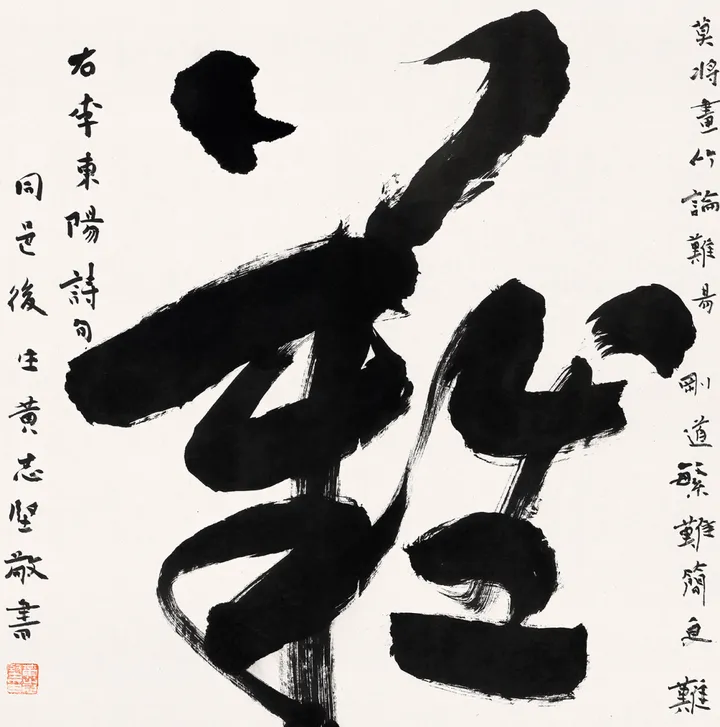 莫將畫竹論難易剛道繁難簡更難
難
右李東陽詩句
同邑後生黃志堅敬書